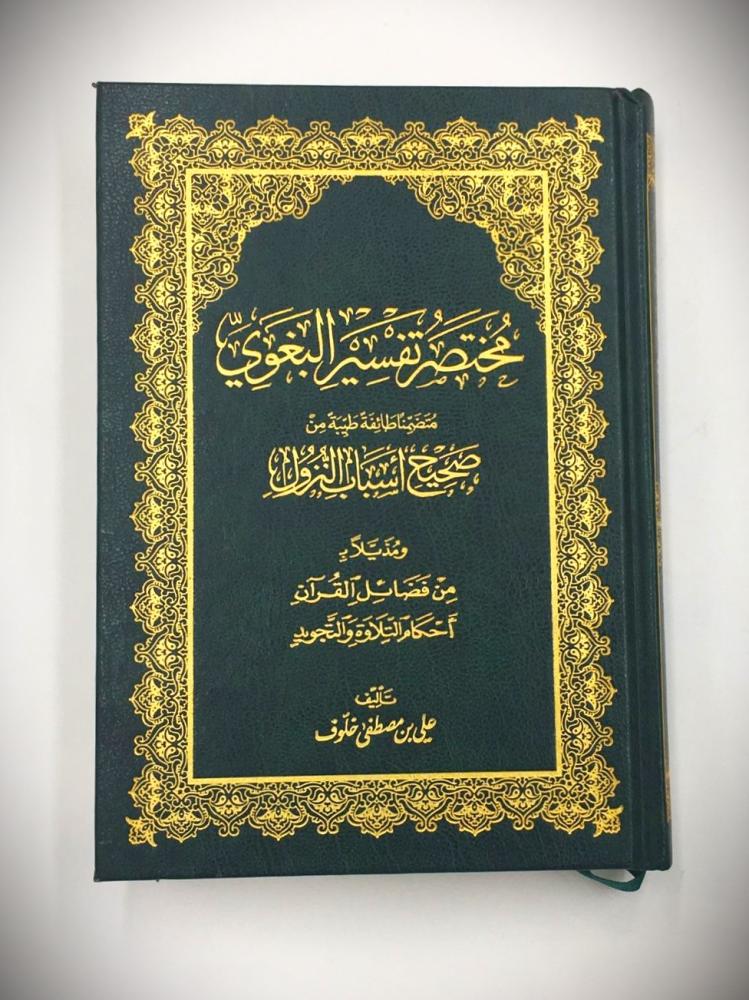 مُخْتَصَرُ تَفْسِيْرِ الْبَغَوِيِّ
مُتَضَمِّنًا طَائِفَةً طَيِّبَةً مِنْ
صَحِيْحِ أَسْبَابِ النُّزُولِ
وَمُذَيَّلًا بِـ
مِنْ فَضَائِلِ الْقُرْآنِ
أَحْكَامِ التِّلَاوَةِ وَالتَّجْوِيدِ
تَأْلِيْفُ
علي بن مصطفى خلّوف